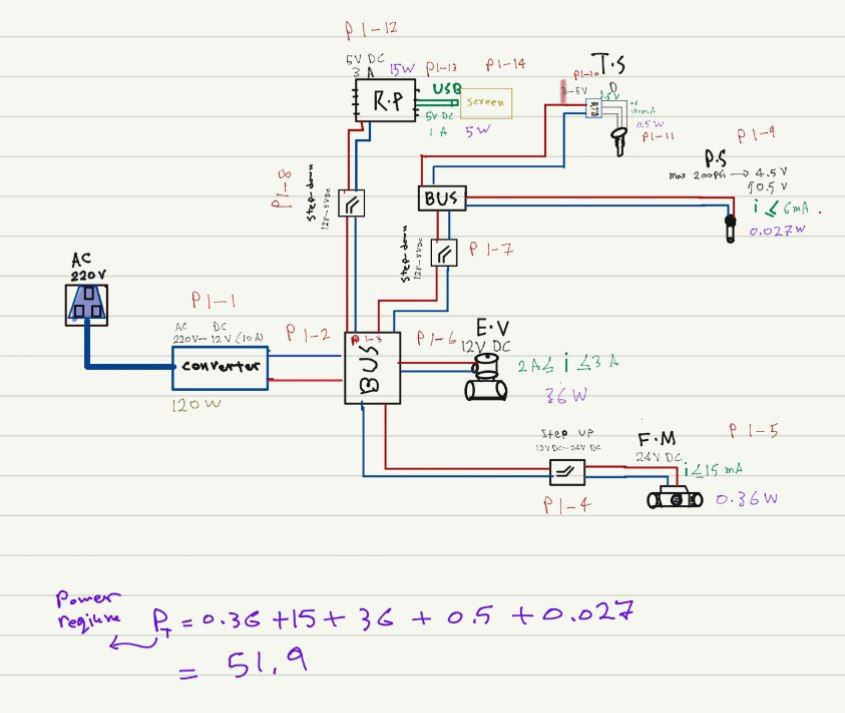 P1-12
5V DC
3 A 15W P1-13 P1-14
R.P USB screen
5V DC
1 A 5W
T.S
P1-10
3-5V
RTD
0.5W
P1-11
P1-9
P.S
max 200psi → 4.5 V
0.5 V
i ≤ 6mA.
0.027W
P1-8
Step-down
12V-5VDC
BUS
Step-down
12V-5VDC
P1-7
AC
220V
P1-1
AC DC
220V-12V (10A)
converter
120W
P1-2
P1-3
BUS
P1-6
E.V
12V DC
2A ≤ i ≤ 3 A
36W
Step UP
12V DC-24V DC
P1-4
F.M
24V DC
P1-5
i ≤ 15 mA
0.36W
Power
reqiure P_T = 0.36 + 15 + 36 + 0.5 + 0.027
= 51.9